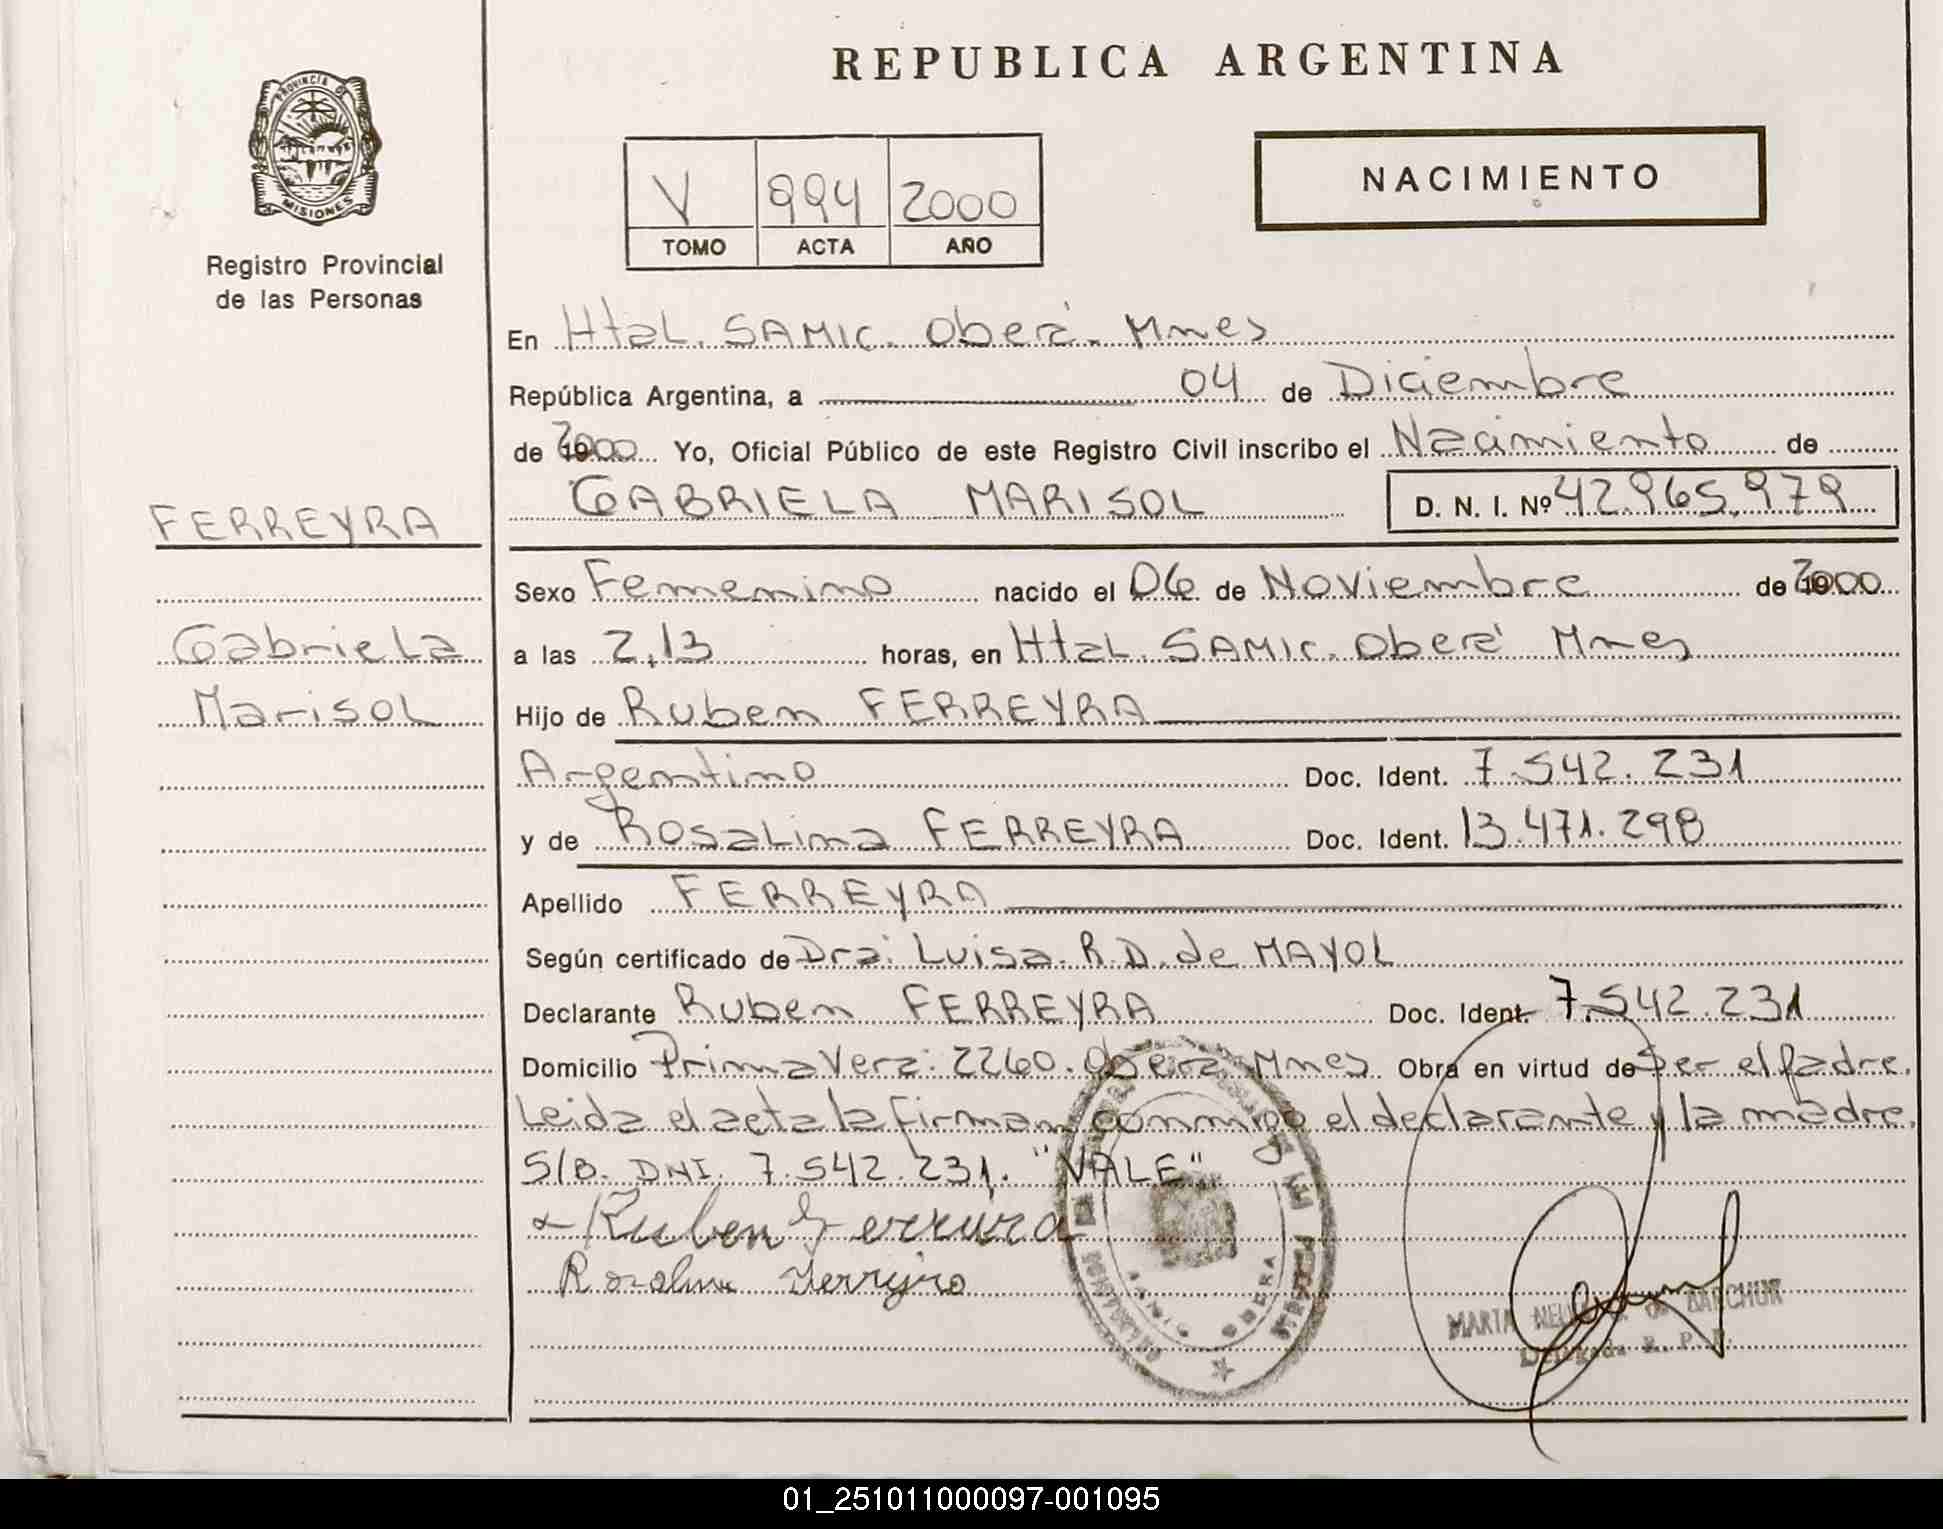 REPUBLICA ARGENTINA
PROVINCIA DE
MISIONES
Registro Provincial
de las Personas
V 994 2000
TOMO ACTA AÑO
NACIMIENTO
En Htal. SAMIC. Oberá. Mnes
República Argentina, a 04 de Diciembre
de 2000 Yo, Oficial Público de este Registro Civil inscribo el Nacimiento de
GABRIELA MARISOL D. N. I. Nº 42.965.979
FERREYRA
Gabriela
Marisol
Sexo Femenino nacido el 06 de Noviembre de 2000
a las 2,13 horas, en Htal. SAMIC. Oberá Mnes
Hijo de Ruben FERREYRA
Argentino Doc. Ident. 7.542.231
y de Rosalina FERREYRA Doc. Ident. 13.471.298
Apellido FERREYRA
Según certificado de Dra: Luisa. R.D. de MAYOL
Declarante Ruben FERREYRA Doc. Ident. 7.542.231
Domicilio Primavera: 2260. Oberá Mnes Obra en virtud de Ser el padre.
Leida el acta la firman conmigo el declarante y la madre.
S/B. DNI. 7.542.231. "VALE"
Ruben Ferreira
Ferreyro
OBERA
MARTA DE
Delegada R. P. P.
01_251011000097-001095